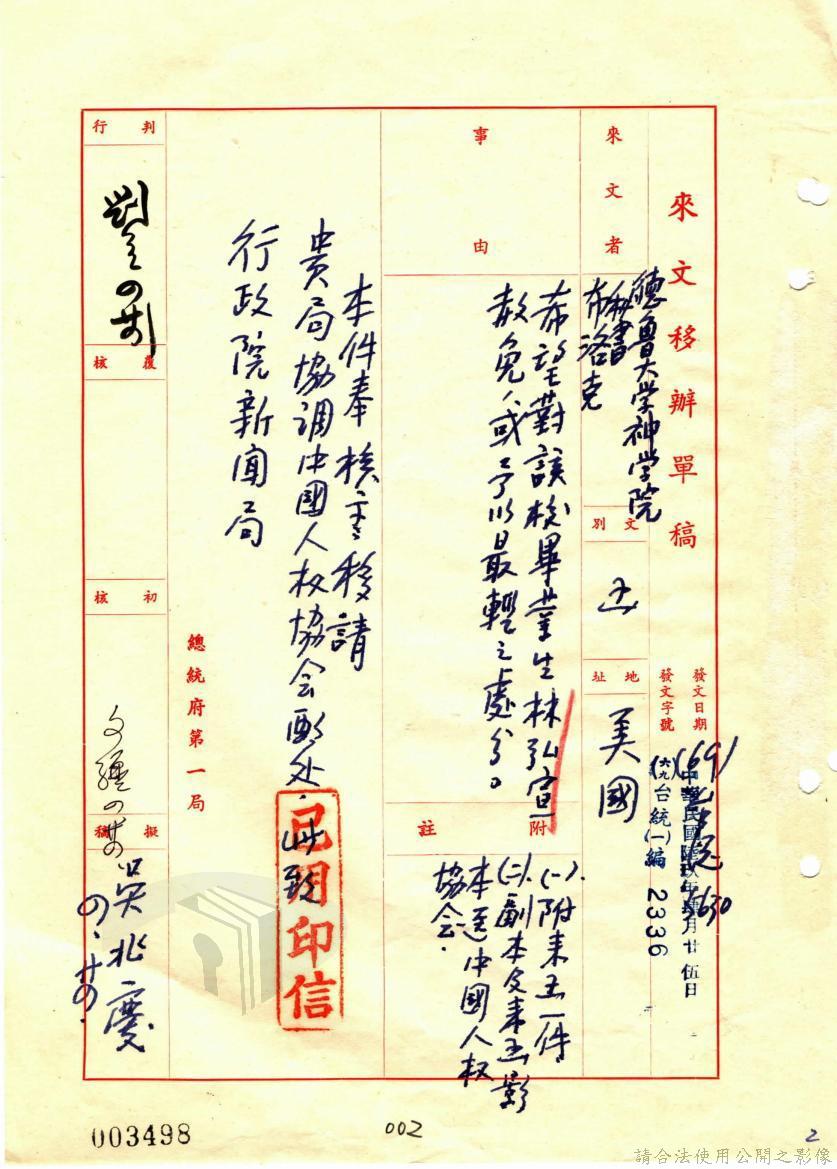 來文移辦單稿
發文日期
中華民國陸玖年肆月廿伍日
發文字號
(六九)台統(一)編 2336
來文者
德魯大学神学院
秘書
布洛克
文別
函
地址
美國
事由
希望對該校畢業生林弘宣
赦免、或予以最輕之處分。
附註
(一)、附來函一件
(二)、副本及來函影
本送中國人权
協会．
本件奉 核章移請
貴局協調中國人权協会酌处．此致
行政院新聞局
已用印信
總統府第一局
判行
覆核
初核
擬稿
吳北慶
003498
002
2
請合法使用公開之影像